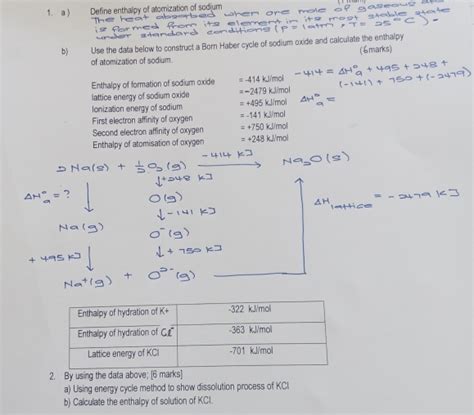 1. a) Define enthalpy of atomization of sodium
The heat absorbed when one mole of gaseous
is formed from its element in its most stable state
under standard conditions (P = 1 atm, T = 25°C).
b) Use the data below to construct a Born Haber cycle of sodium oxide and calculate the enthalpy
of atomization of sodium. (6marks)
Enthalpy of formation of sodium oxide = -414 kJ/mol
lattice energy of sodium oxide =-2479 kJ/mol
Ionization energy of sodium = +495 kJ/mol
First electron affinity of oxygen = -141 kJ/mol
Second electron affinity of oxygen = +750 kJ/mol
Enthalpy of atomisation of oxygen = +248 kJ/mol
-414 = ΔH°a + 495 + 248 +
(-141) + 750 + (-2479)
ΔH°a =
2Na(s) + ½O₂(g) -414 kJ Na₂O(s)
ΔH°a = ? ↓+248 kJ
O(g)
↓-141 kJ
Na(g) O⁻(g)
+495 kJ ↓+750 kJ
Na⁺(g) + O²⁻(g)
ΔH lattice = -2479 kJ
Enthalpy of hydration of K+ -322 kJ/mol
Enthalpy of hydration of Cl⁻ -363 kJ/mol
Lattice energy of KCl -701 kJ/mol
2. By using the data above; [6 marks]
a) Using energy cycle method to show dissolution process of KCl
b) Calculate the enthalpy of solution of KCl.